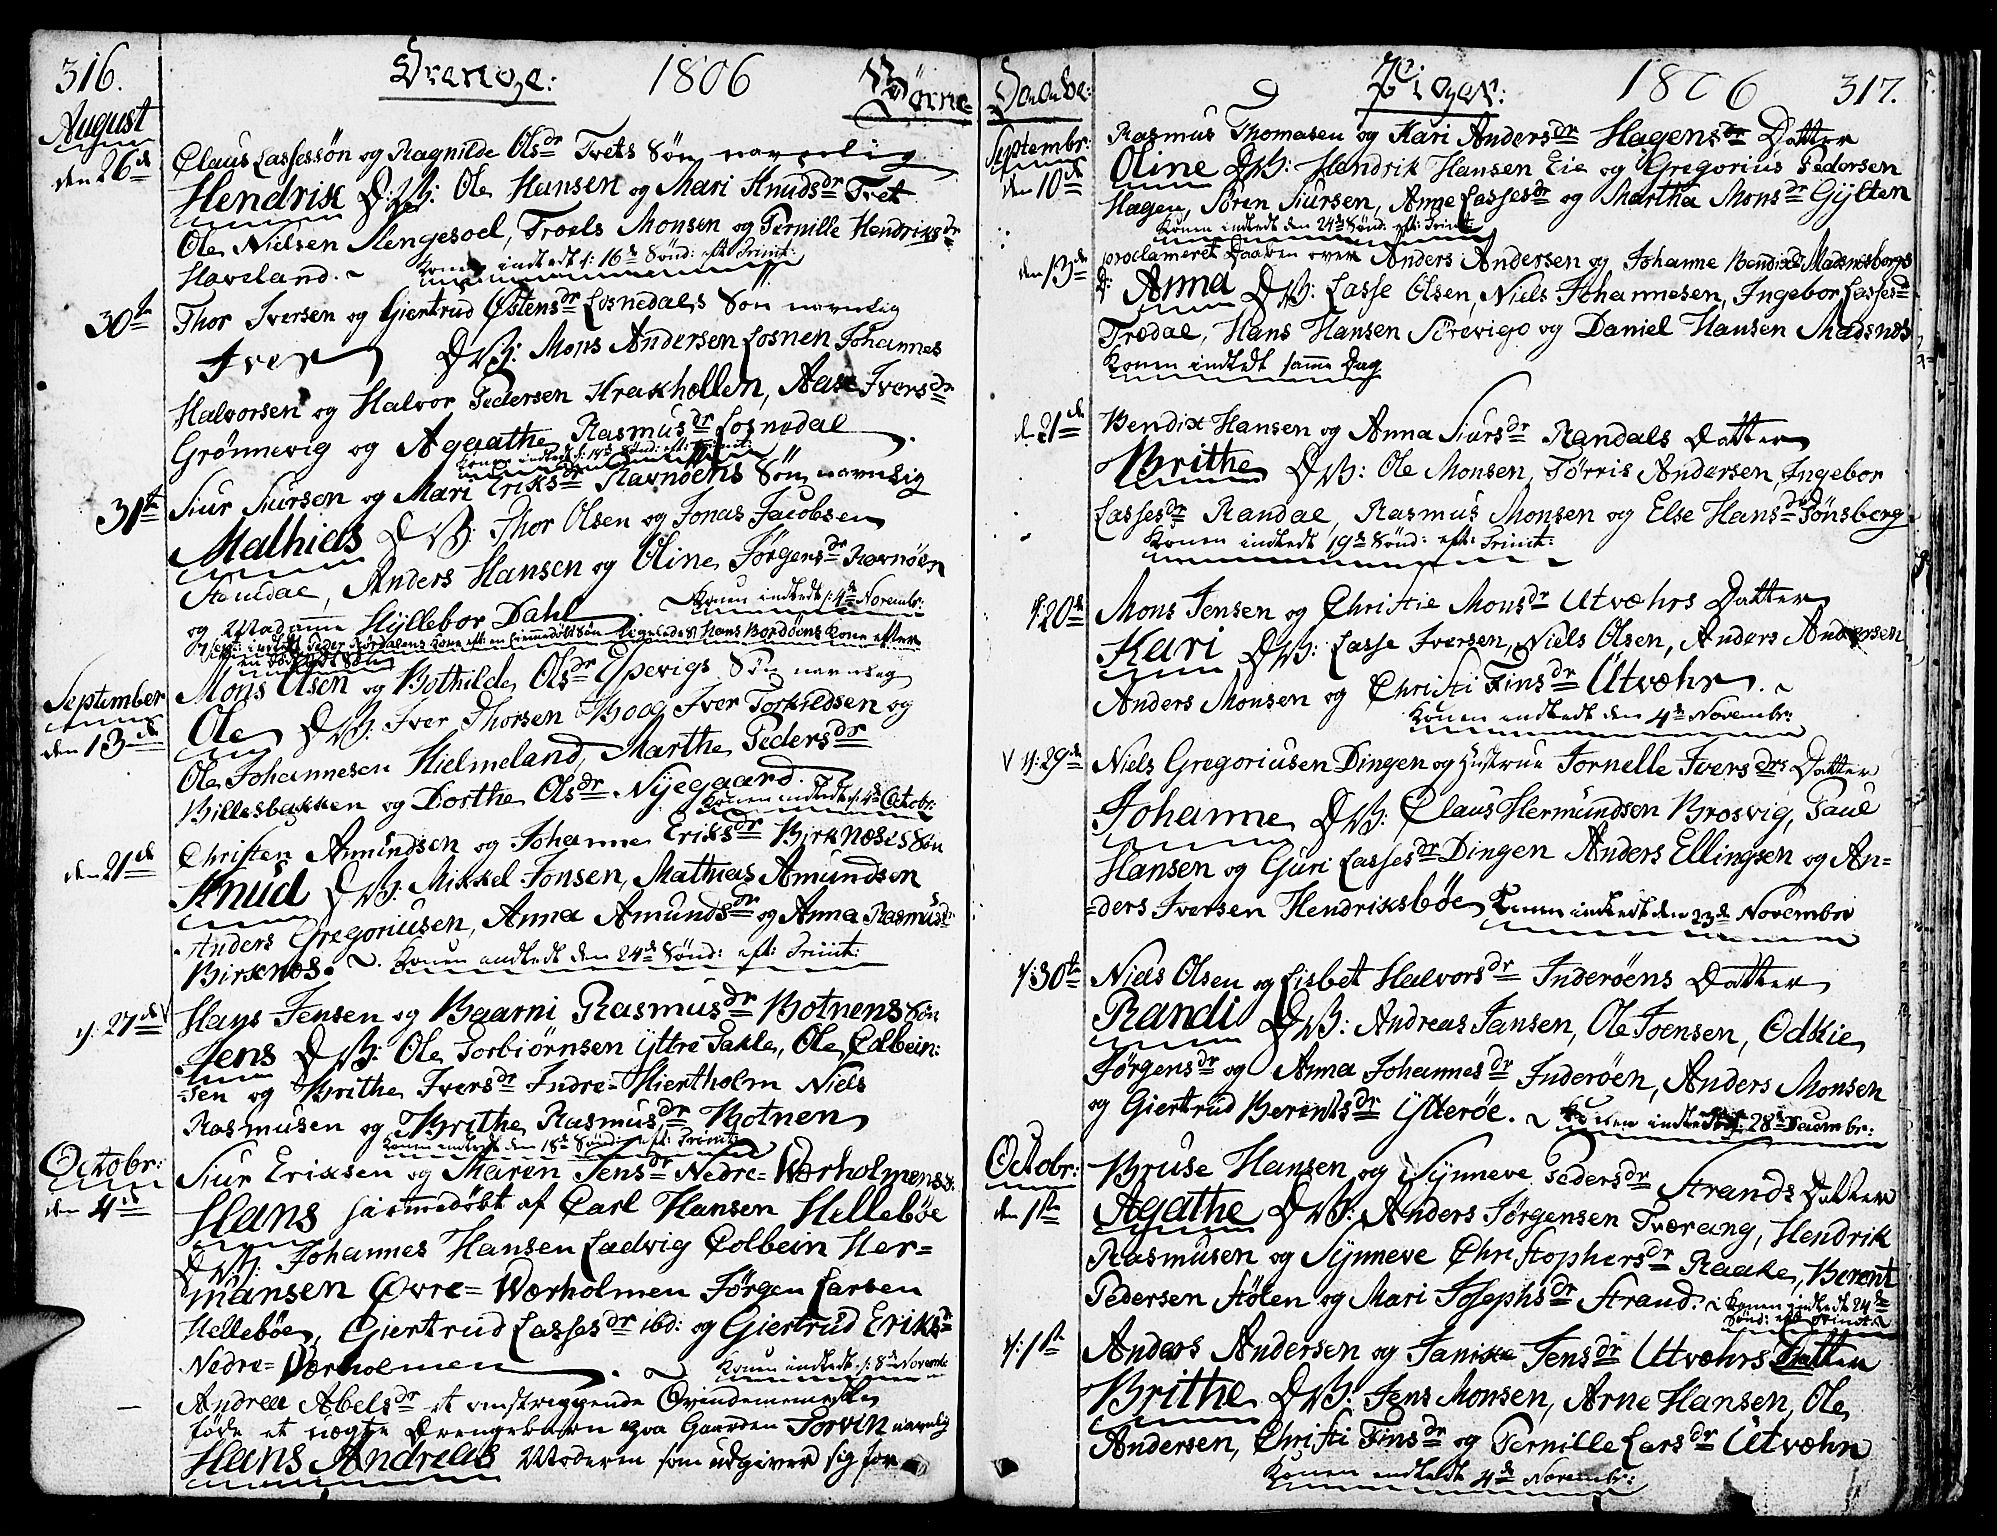 316. Drenge: 1806 Børne
August
den 26de Claus Lassessøn og Ragnilde Olsdr Tvets Søn navnlig
Hendrik D:W: Ole Hansen og Mari Knudsdr Tvet
Ole Nielsen Slengesoel, Troels Monsen og Pernille Hendriksdr
Haveland. ~ Konen indledt d: 16de Sønd: eft: Trinit:
30te Thor Iversen og Giertrud Østensdr Losnedals Søn navnlig
Iver DW: Mons Andersen Losnen Johannes
Halvorsen og Halvor Pedersen Krakhellen, Aase Iversdr
Grønnevig og Agathe Rasmusdr Losnedal
Konen indledt 19de Sønd: eft: Trinit:
31te Siur Siursen og Mari Eriksdr Ravnøens Søn navnlig
Mathias DW: Thor Olsen og Jonas Jacobsen
Stendal, Anders Hansen og Oline Jørgensdr Ravnøen
og Madame Hyllebor Dahl. ~ Konen indledt d: 4de Novembr:
en dødfødt Søn
September
den 13de Mons Olsen og Bothilde Olsdr Ypevigs Søn navnlig
Ole DW: Iver Thorsen Boog Iver Torkildsen og
Ole Johannesen Hielmeland, Marthe Pedersdr
Billesbakken og Dorthe Olsdr Nyegaard.
Konen indledt d: 4de Octobr:
den 21de Christen Amundsen og Johanne Eriksdr Birknæses Søn
Knud DW: Mikkel Jonsen, Mathias Amundsen
Anders Gregoriusen, Anna Amundsdr og Anna Rasmusdr
Birknæs. ~ Konen indledt den 24de Sønd: eft: Trinit:
d: 27de Hans Jensen og Baarni Rasmusdr Botnens Søn
Jens DW: Ole Torbiørnsen Yttre Takle, Ole Colbein:
sen og Brithe Iversdr Indre-Hiertholm Niels
Rasmusen og Brithe Rasmusdr Botnen
Konen indledt den 18de Sønd: eft: Trinit:
Octobr:
den 4de Siur Eriksen og Maren Jensdr Nedre=Værholmens S:
Hans hjemmedøbt af Carl Hansen Hellebøe
DW: Johannes Hansen Ladvig Colbein Her=
mansen Øvre=Værholmen Jørgen Larsen
Hellebøe, Giertrud Lassesdr ibd: og Giertrud Eriksdr
Nedre=Værholmen. ~ Konen indledt d: 8de Novembr
Andrea Abelsdr et omstrippende Qvindemenneske
føde et uægte Drengebarn paa Gaarden Sorvin navnlig
Hans Andreas Moderen som udgiver sig for
Daabe: Piger: 1806 317.
Septembr:
den 10de Rasmus Thomasen og Kari Andersdr Hagensdr Datter
Oline DW: Hendrik Hansen Eie og Gregorius Pedersen
Hagen, Søren Siursen, Anne Lassesdr og Martha Monsdr Gylten
Konen indledt den 24de Sønd: eft: Trinit:
den 13de proclameret Daaben over Anders Andersen og Johanne Bendixdr Madsnesbergs
D: Anna DW: Lasse Olsen, Niels Johannesen, Ingebor Lassesdr
Trædal, Hans Hansen Strevigo og Daniel Hansen Madsnes
Konen indledt samme Dag
d. 21de Bendix Hansen og Anna Siursdr Randals Datter
Brithe DW: Ole Monsen, Tørris Andersen, Ingebor
Lassesdr Randal, Rasmus Monsen og Else Hansdr Tønsberg
Konen indledt 19de Sønd: eft: Trinit:
d: 20de Mons Jensen og Christie Monsdr Utvæhrs Datter
Kari DW: Lasse Iversen, Niels Olsen, Anders Andersen
Anders Monsen og Christi Finsdr Utvæhr. ~
Konen indledt den 4de Novembr:
d: 29de Niels Gregoriusen Dingen og Hustrue Jornelle Iversdrs Datter
Johanne DW: Claus Hermundsen Brosvig, Paul
Hansen og Guri Lassesdr Dingen Anders Ellingsen og An=
=ders Iversen Hendriksbøe, Konen indledt den 23de Novembr
d: 30te Niels Olsen og Lisbet Halvorsdr Inderøens Datter
Randi DW: Andreas Jansen, Ole Joensen, Odkie
Jørgensdr og Anna Johannesdr Inderøen, Anders Monsen
og Giertrud Berentsdr Ytterøe. ~ Konen indledt d: 28de Decembr:
Octobr:
den 1ste Bruse Hansen og Synneve Pedersdr Strands Datter
Agathe DW: Anders Jørgensen Tværang, Hendrik
Rasmusen og Synneve Christophersdr Raake, Berent
Pedersen Stølen og Mari Josephsdr Strand. ~ Konen indledt 24de
Sønd: eft: Trinit:
d: 1ste Anders Andersen og Janike Jensdr Utvæhrs Datter
Brithe DW: Jens Monsen, Arne Hansen, Ole
Andersen, Christi Finsdr og Pernille Larsdr Utvæhr
Konen indledt 4de Novembr: